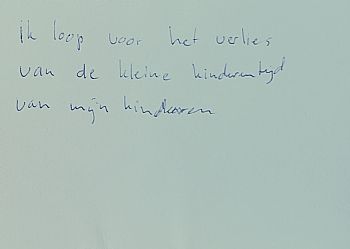 ik loop voor het verlies
van de kleine kindertijd
van mijn kinderen